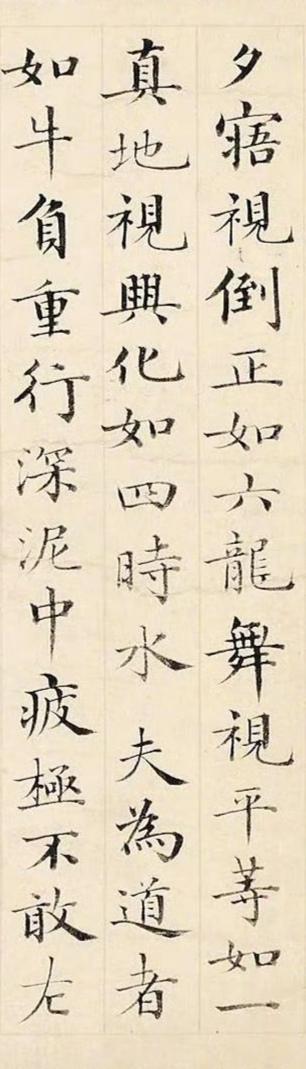 夕寤視倒正如六龍舞視平等如一
真地視興化如四時水 夫為道者
如牛負重行深泥中疲極不敢左